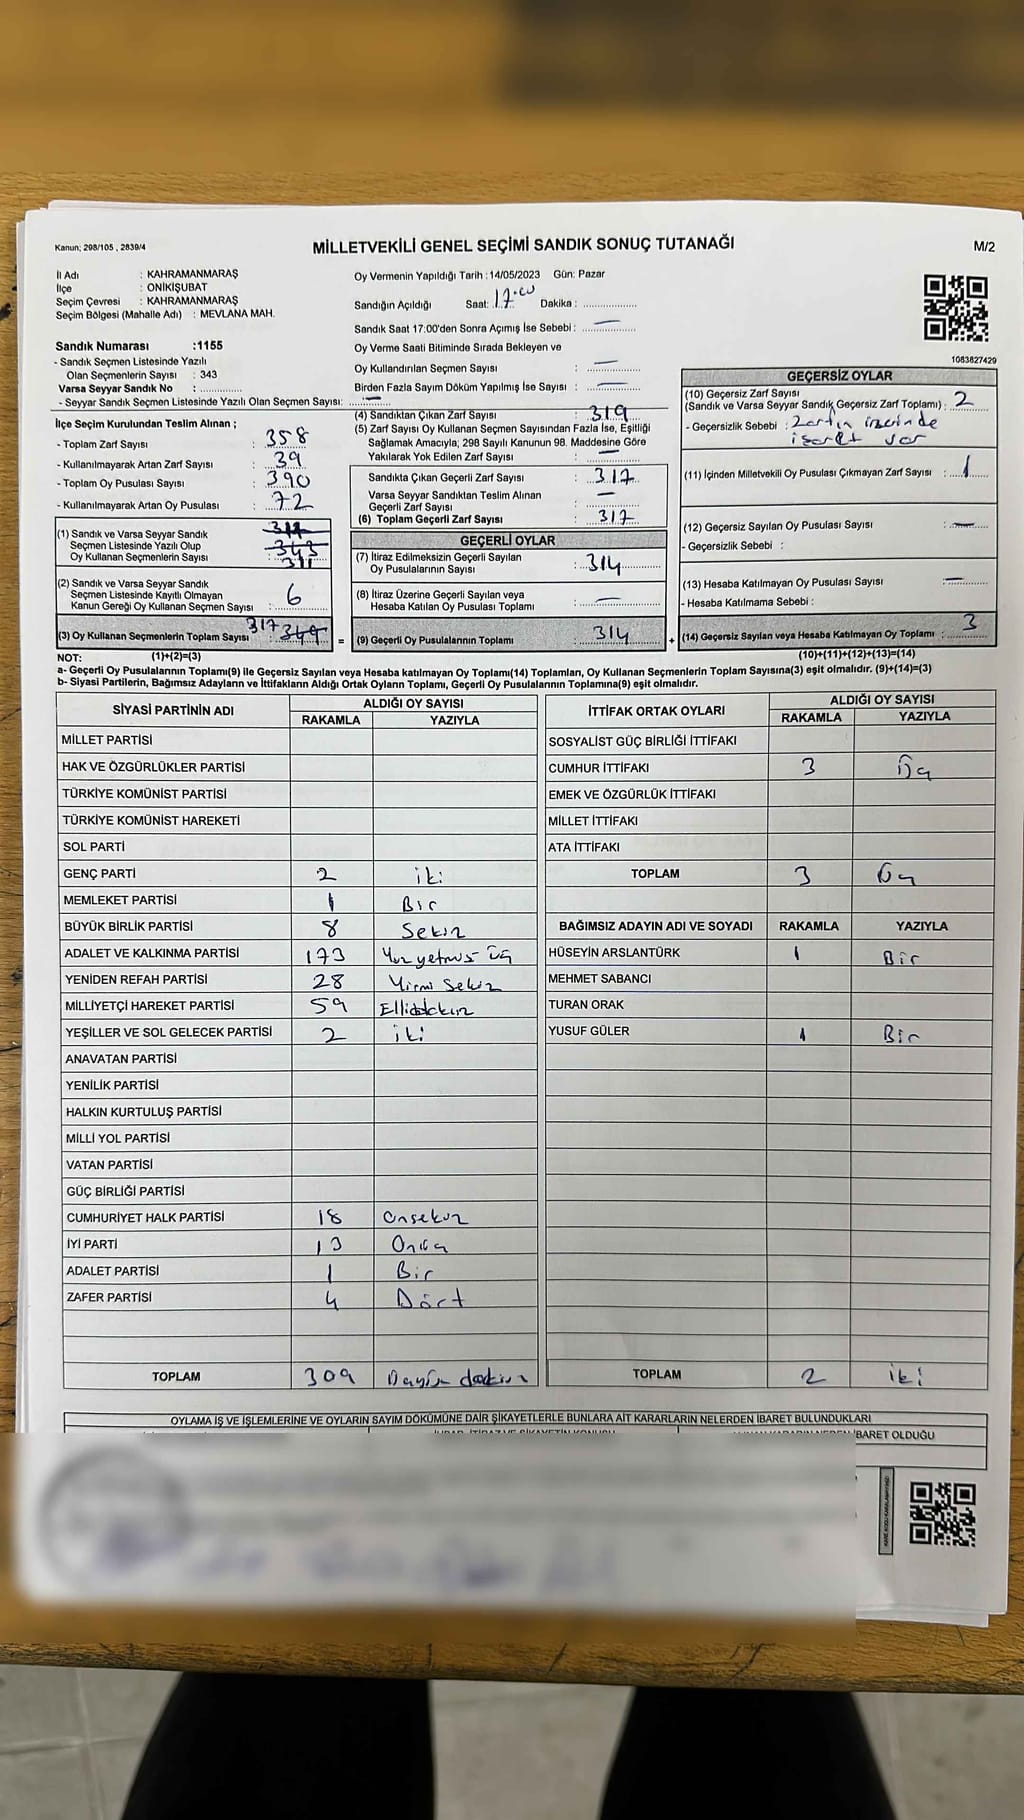 Kanun; 298/105 , 2839/4
MİLLETVEKİLİ GENEL SEÇİMİ SANDIK SONUÇ TUTANAĞI
M/2
İl Adı : KAHRAMANMARAŞ
İlçe : ONİKİŞUBAT
Seçim Çevresi : KAHRAMANMARAŞ
Seçim Bölgesi (Mahalle Adı) : MEVLANA MAH.
Sandık Numarası :1155
- Sandık Seçmen Listesinde Yazılı
Olan Seçmenlerin Sayısı : 343
Varsa Seyyar Sandık No : ............
- Seyyar Sandık Seçmen Listesinde Yazılı Olan Seçmen Sayısı: —
Oy Vermenin Yapıldığı Tarih :14/05/2023 Gün: Pazar
Sandığın Açıldığı Saat: 17.00 Dakika : ................
Sandık Saat 17:00'den Sonra Açımış İse Sebebi : —
Oy Verme Saati Bitiminde Sırada Bekleyen ve
Oy Kullandırılan Seçmen Sayısı : —
Birden Fazla Sayım Döküm Yapılmış İse Sayısı : —
1083827429
İlçe Seçim Kurulundan Teslim Alınan ;
- Toplam Zarf Sayısı : 358
- Kullanılmayarak Artan Zarf Sayısı : 39
- Toplam Oy Pusulası Sayısı : 390
- Kullanılmayarak Artan Oy Pusulası : 72
(1) Sandık ve Varsa Seyyar Sandık
Seçmen Listesinde Yazılı Olup
Oy Kullanan Seçmenlerin Sayısı 343 311
(2) Sandık ve Varsa Seyyar Sandık
Seçmen Listesinde Kayıtlı Olmayan
Kanun Gereği Oy Kullanan Seçmen Sayısı : 6
(3) Oy Kullanan Seçmenlerin Toplam Sayısı 317 349
(1)+(2)=(3)
(4) Sandıktan Çıkan Zarf Sayısı : 319
(5) Zarf Sayısı Oy Kullanan Seçmen Sayısından Fazla İse, Eşitliği
Sağlamak Amacıyla; 298 Sayılı Kanunun 98. Maddesine Göre
Yakılarak Yok Edilen Zarf Sayısı : —
Sandıkta Çıkan Geçerli Zarf Sayısı : 317
Varsa Seyyar Sandıktan Teslim Alınan
Geçerli Zarf Sayısı : —
(6) Toplam Geçerli Zarf Sayısı : 317
GEÇERLİ OYLAR
(7) İtiraz Edilmeksizin Geçerli Sayılan
Oy Pusulalarının Sayısı : 314
(8) İtiraz Üzerine Geçerli Sayılan veya
Hesaba Katılan Oy Pusulası Toplamı : —
= (9) Geçerli Oy Pusulalarının Toplamı : 314 +
GEÇERSİZ OYLAR
(10) Geçersiz Zarf Sayısı
(Sandık ve Varsa Seyyar Sandık Geçersiz Zarf Toplamı) : 2
- Geçersizlik Sebebi : Zarfın üzerinde
işaret var
(11) İçinden Milletvekili Oy Pusulası Çıkmayan Zarf Sayısı : 1
(12) Geçersiz Sayılan Oy Pusulası Sayısı : —
- Geçersizlik Sebebi :
(13) Hesaba Katılmayan Oy Pusulası Sayısı : —
- Hesaba Katılmama Sebebi :
(14) Geçersiz Sayılan veya Hesaba Katılmayan Oy Toplamı : 3
(10)+(11)+(12)+(13)=(14)
NOT:
a- Geçerli Oy Pusulalarının Toplamı(9) ile Geçersiz Sayılan veya Hesaba katılmayan Oy Toplamı(14) Toplamları, Oy Kullanan Seçmenlerin Toplam Sayısına(3) eşit olmalıdır. (9)+(14)=(3)
b- Siyasi Partilerin, Bağımsız Adayların ve İttifakların Aldığı Ortak Oyların Toplamı, Geçerli Oy Pusulalarının Toplamına(9) eşit olmalıdır.
SİYASİ PARTİNİN ADI ALDIĞI OY SAYISI
RAKAMLA YAZIYLA
MİLLET PARTİSİ
HAK VE ÖZGÜRLÜKLER PARTİSİ
TÜRKİYE KOMÜNİST PARTİSİ
TÜRKİYE KOMÜNİST HAREKETİ
SOL PARTİ
GENÇ PARTİ 2 iki
MEMLEKET PARTİSİ 1 Bir
BÜYÜK BİRLİK PARTİSİ 8 Sekiz
ADALET VE KALKINMA PARTİSİ 173 Yüz yetmiş üç
YENİDEN REFAH PARTİSİ 28 Yirmi Sekiz
MİLLİYETÇİ HAREKET PARTİSİ 59 Ellidokuz
YEŞİLLER VE SOL GELECEK PARTİSİ 2 iki
ANAVATAN PARTİSİ
YENİLİK PARTİSİ
HALKIN KURTULUŞ PARTİSİ
MİLLİ YOL PARTİSİ
VATAN PARTİSİ
GÜÇ BİRLİĞİ PARTİSİ
CUMHURİYET HALK PARTİSİ 18 Onsekiz
İYİ PARTİ 13 Onüç
ADALET PARTİSİ 1 Bir
ZAFER PARTİSİ 4 Dört
TOPLAM 309
İTTİFAK ORTAK OYLARI ALDIĞI OY SAYISI
RAKAMLA YAZIYLA
SOSYALİST GÜÇ BİRLİĞİ İTTİFAKI
CUMHUR İTTİFAKI 3 Üç
EMEK VE ÖZGÜRLÜK İTTİFAKI
MİLLET İTTİFAKI
ATA İTTİFAKI
TOPLAM 3 Üç
BAĞIMSIZ ADAYIN ADI VE SOYADI RAKAMLA YAZIYLA
HÜSEYİN ARSLANTÜRK 1 Bir
MEHMET SABANCI
TURAN ORAK
YUSUF GÜLER 1 Bir
TOPLAM 2 iki
OYLAMA İŞ VE İŞLEMLERİNE VE OYLARIN SAYIM DÖKÜMÜNE DAİR ŞİKAYETLERLE BUNLARA AİT KARARLARIN NELERDEN İBARET BULUNDUKLARI
İBARET OLDUĞU